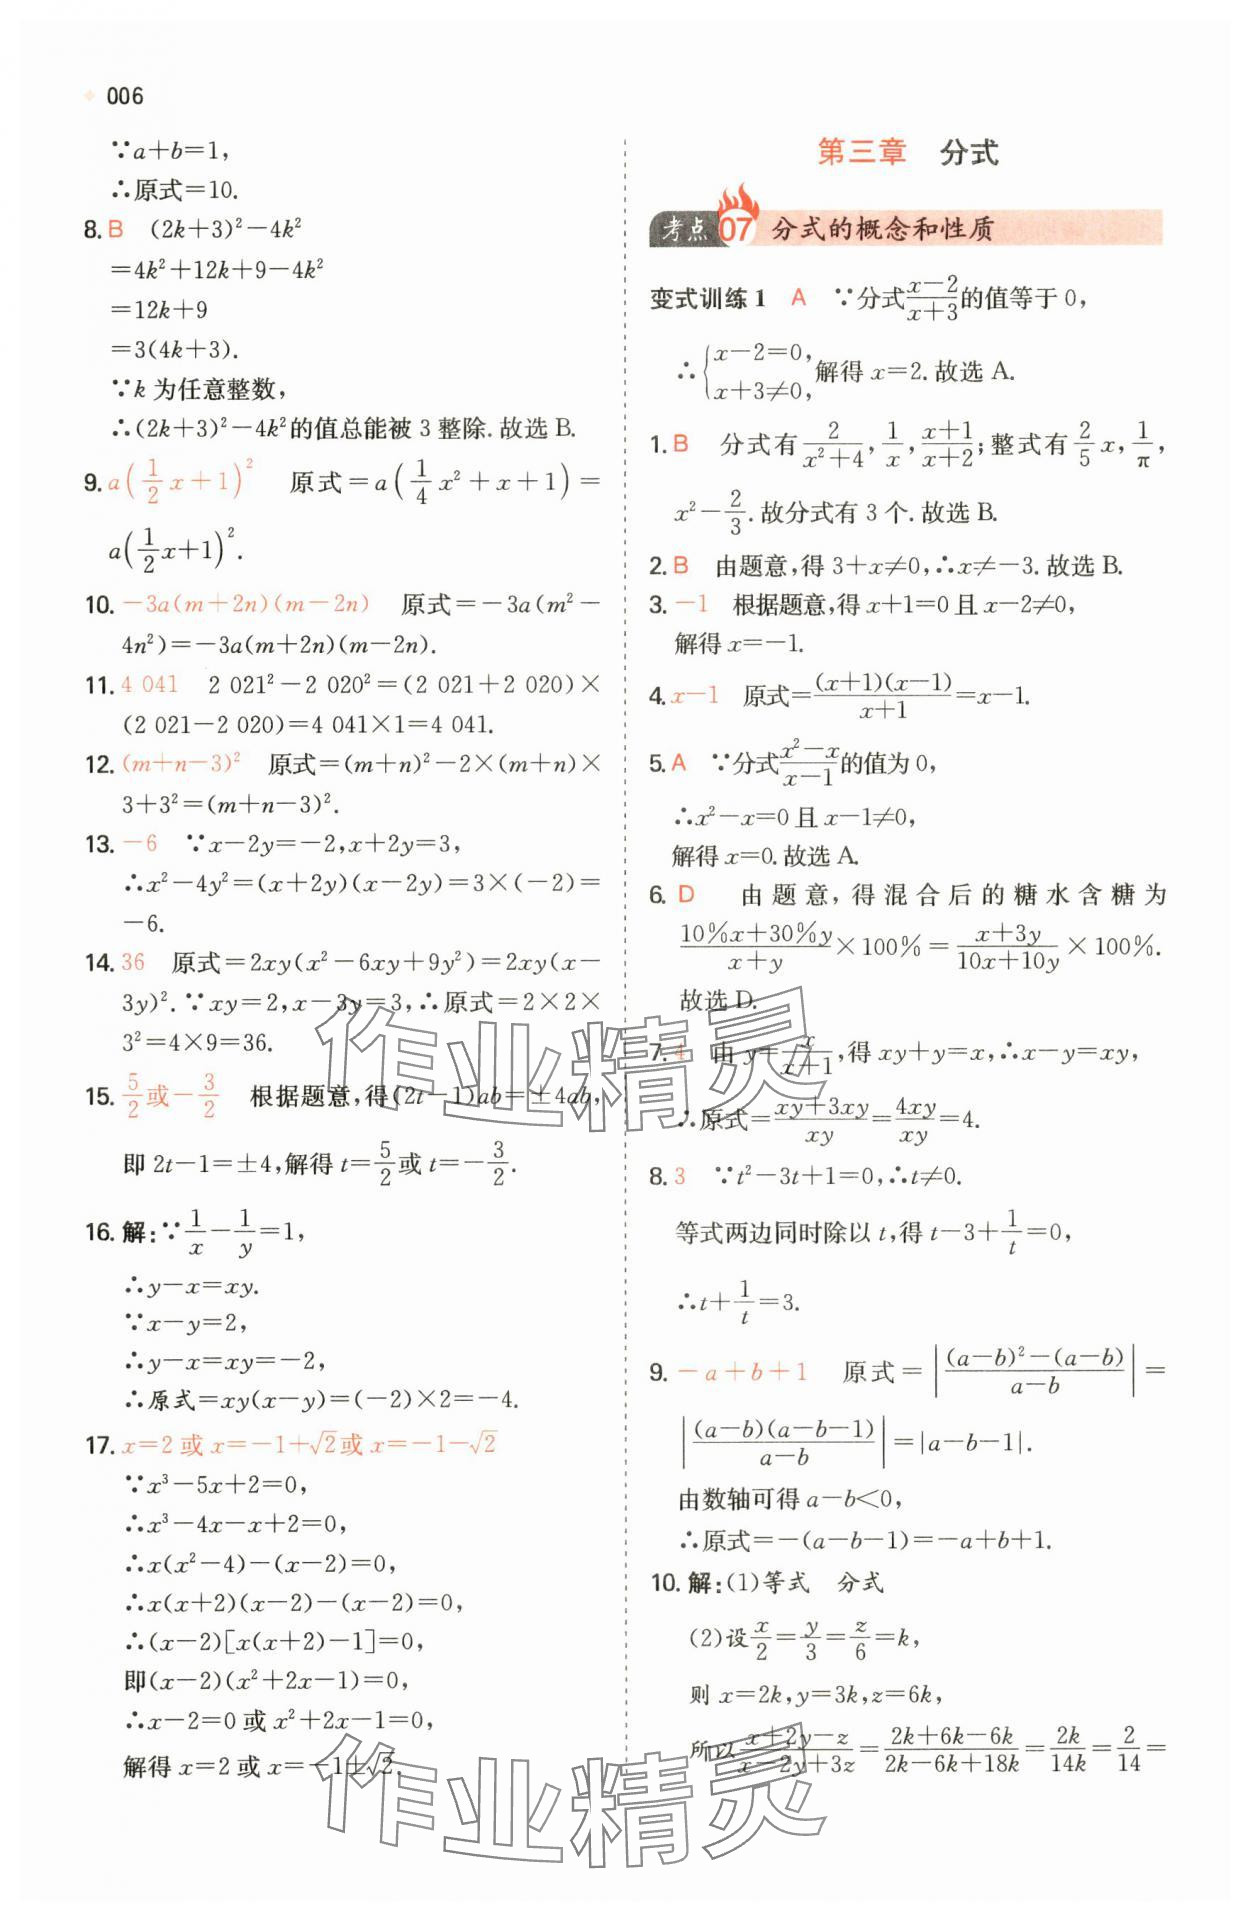 006
∵a+b=1,
∴原式=10.
8. B (2k+3)²-4k²
=4k²+12k+9-4k²
=12k+9
=3(4k+3).
∵k 为任意整数,
∴(2k+3)²-4k²的值总能被 3 整除. 故选 B.
9. a(\frac{1}{2}x+1)² 原式=a(\frac{1}{4}x²+x+1)=
a(\frac{1}{2}x+1)².
10. -3a(m+2n)(m-2n) 原式=-3a(m²-
4n²)=-3a(m+2n)(m-2n).
11. 4 041 2 021²-2 020²=(2 021+2 020)×
(2 021-2 020)=4 041×1=4 041.
12. (m+n-3)² 原式=(m+n)²-2×(m+n)×
3+3²=(m+n-3)².
13. -6 ∵x-2y=-2,x+2y=3,
∴x²-4y²=(x+2y)(x-2y)=3×(-2)=
-6.
14. 36 原式=2xy(x²-6xy+9y²)=2xy(x-
3y)². ∵xy=2,x-3y=3,∴原式=2×2×
3²=4×9=36.
15. \frac{5}{2}或-\frac{3}{2} 根据题意,得(2t-1)ab=±4ab,
即 2t-1=±4,解得 t=\frac{5}{2}或 t=-\frac{3}{2}.
16. 解:∵\frac{1}{x}-\frac{1}{y}=1,
∴y-x=xy.
∵x-y=2,
∴y-x=xy=-2,
∴原式=xy(x-y)=(-2)×2=-4.
17. x=2 或 x=-1+√2或 x=-1-√2
∵x³-5x+2=0,
∴x³-4x-x+2=0,
∴x(x²-4)-(x-2)=0,
∴x(x+2)(x-2)-(x-2)=0,
∴(x-2)[x(x+2)-1]=0,
即(x-2)(x²+2x-1)=0,
∴x-2=0 或 x²+2x-1=0,
解得 x=2 或 x=-1±√2.
第三章 分式
考点 07 分式的概念和性质
变式训练 1 A ∵分式\frac{x-2}{x+3}的值等于 0,
∴{x-2=0, x+3≠0, 解得 x=2. 故选 A.
1. B 分式有\frac{2}{x²+4},\frac{1}{x},\frac{x+1}{x+2};整式有\frac{2}{5}x,\frac{1}{π},
x²-\frac{2}{3}. 故分式有 3 个. 故选 B.
2. B 由题意,得 3+x≠0,∴x≠-3. 故选 B.
3. -1 根据题意,得 x+1=0 且 x-2≠0,
解得 x=-1.
4. x-1 原式=\frac{(x+1)(x-1)}{x+1}=x-1.
5. A ∵分式\frac{x²-x}{x-1}的值为 0,
∴x²-x=0 且 x-1≠0,
解得 x=0. 故选 A.
6. D 由题意,得混合后的糖水含糖为
\frac{10%x+30%y}{x+y}×100%=\frac{x+3y}{10x+10y}×100%.
故选 D.
7. 4 由 y=\frac{x}{x+1},得 xy+y=x,∴x-y=xy,
∴原式=\frac{xy+3xy}{xy}=\frac{4xy}{xy}=4.
8. 3 ∵t²-3t+1=0,∴t≠0.
等式两边同时除以 t,得 t-3+\frac{1}{t}=0,
∴t+\frac{1}{t}=3.
9. -a+b+1 原式=|\frac{(a-b)²-(a-b)}{a-b}|=
|\frac{(a-b)(a-b-1)}{a-b}|=|a-b-1|.
由数轴可得 a-b<0,
∴原式=-(a-b-1)=-a+b+1.
10. 解:(1)等式 分式
(2)设\frac{x}{2}=\frac{y}{3}=\frac{z}{6}=k,
则 x=2k,y=3k,z=6k,
所以\frac{x+2y-z}{x-2y+3z}=\frac{2k+6k-6k}{2k-6k+18k}=\frac{2k}{14k}=\frac{2}{14}=
作业精灵
作业精灵